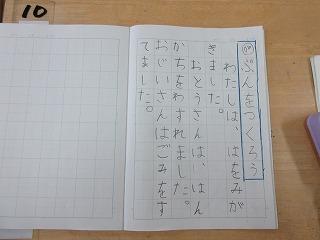 10
めぶんをつくろう
わたしは、はをみが
きました。
おとうさんは、はん
かちをわすれました。
おじいさんはごみをす
てました。